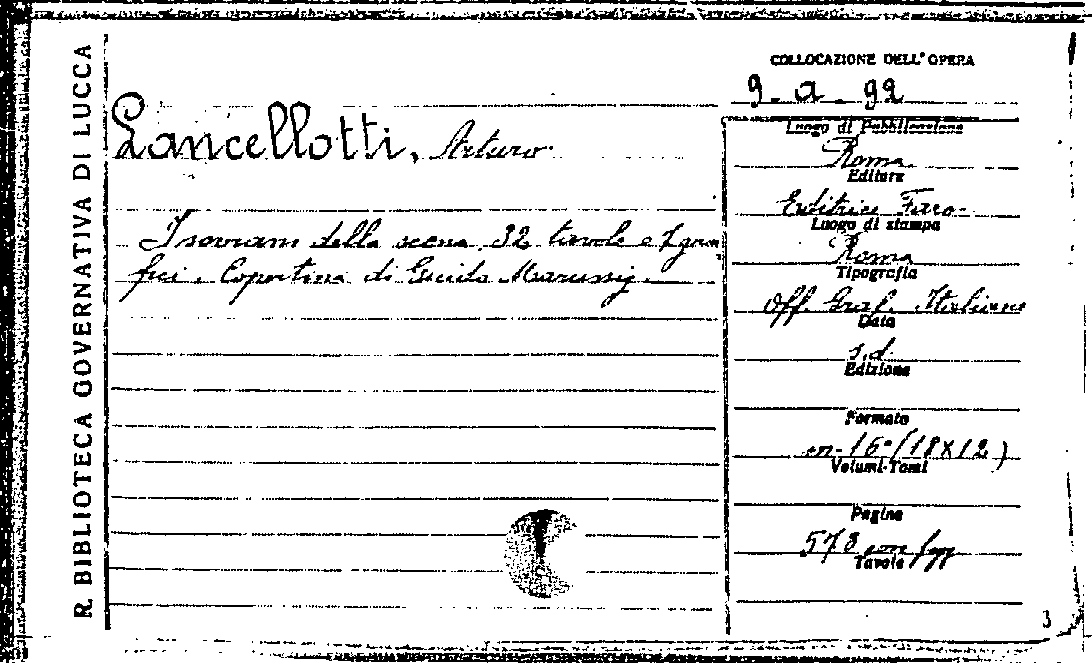 R. BIBLIOTECA GOVERNATIVA DI LUCCA
Lancellotti, Arturo
I sovrani della scena 32 tavole e
fici. Copertina di Guido Marussig.
COLLOCAZIONE DELL'OPERA
9. a. 92
Luogo di Pubblicazione
Roma
Editore
Editrice Faro
Luogo di stampa
Roma
Tipografia
Off. Graf. Italiane
Data
s.d.
Edizione
Formato
in-16°(18X12)
Volumi-Tomi
Pagine
573 con
Tavole
3